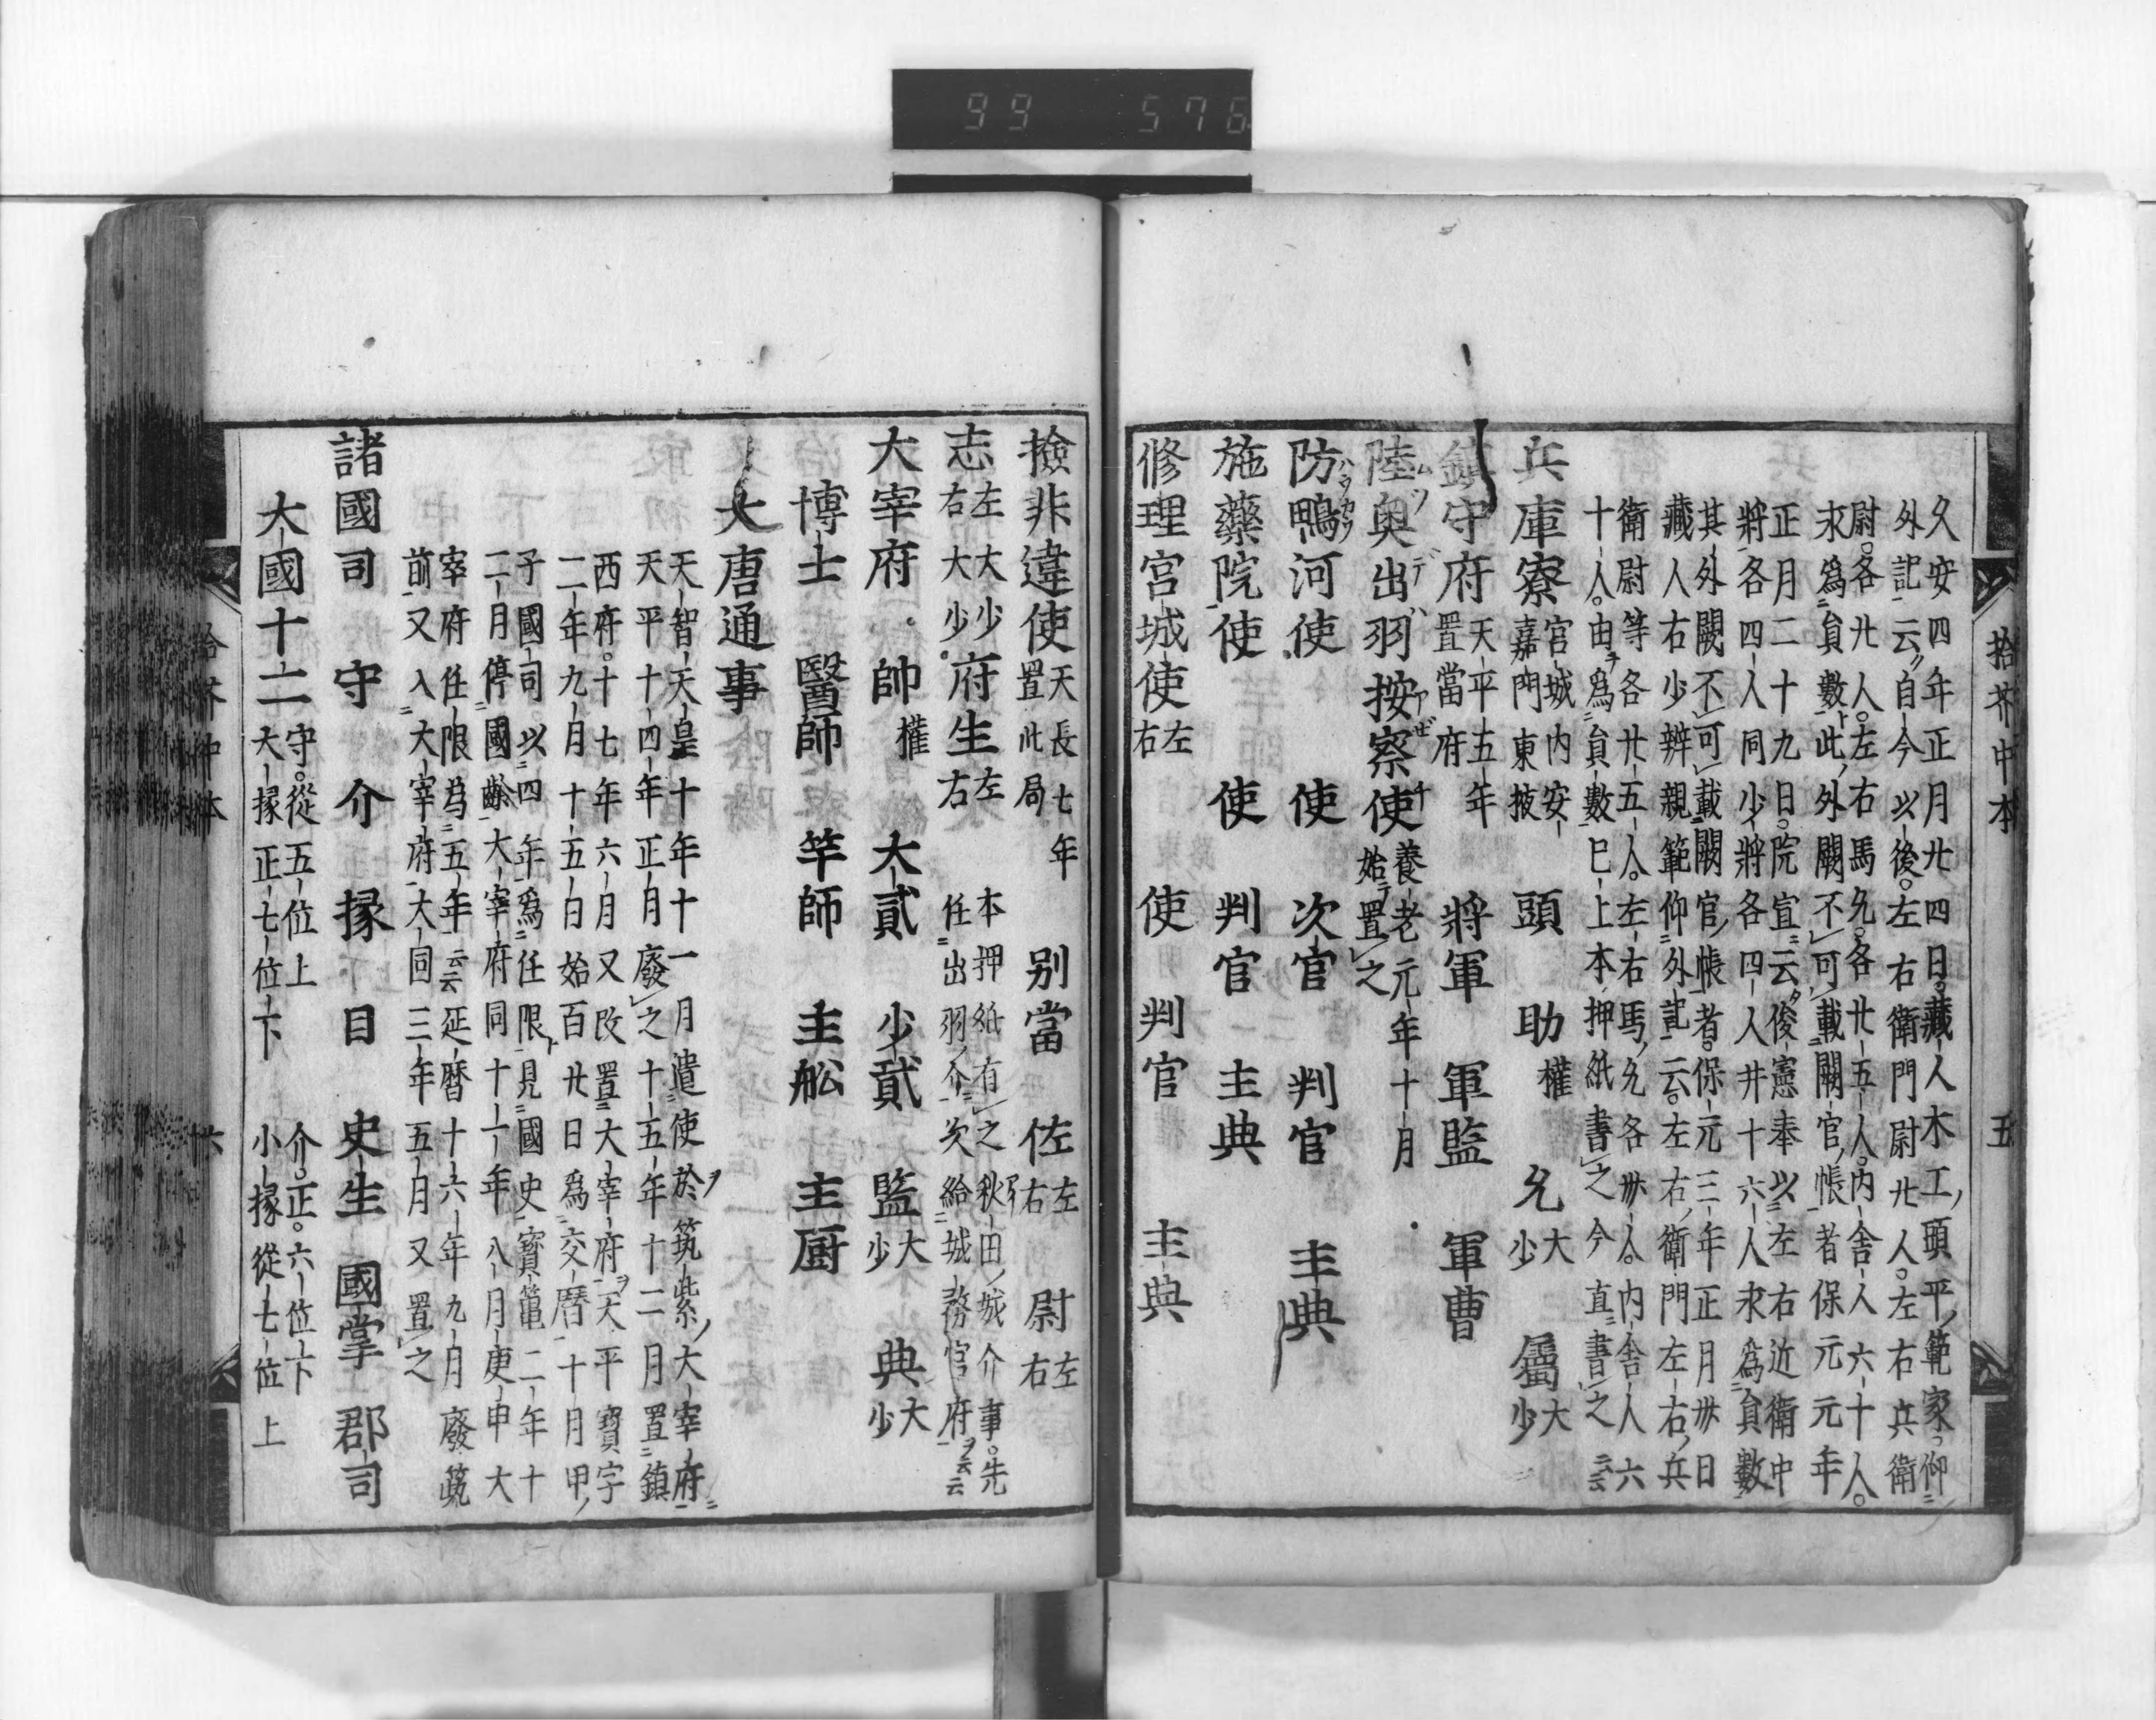 99 576
久安四年正月廿四日藏人木工頭平範家仰
外記云自今以後左右衛門尉廿人左右兵衛
尉各廿人左右馬允各廿五人内舎人六十人
求爲員數此外闕不可載闕官帳者保元元年
正月二十九日院宣云俊憲奉以左右近衛中
將各四人同少將各四人井十六人求爲員數
其外闕不可載闕官帳者保元三年正月卅日
藏人右少辨親範仰外記云左右衛門左右兵
衛尉等各廿五人左右馬允各卅人内舎人六
十人由爲員數巳上本押紙書之今直書之云云
兵庫寮 官城内安嘉門東掖 頭 助權 允大少 屬大少
鎮守府 天平五年置當府 將軍 軍監 軍曹
陸奥出羽按察使 養老元年十月始置之
防鴨河使 使 次官 判官 主典
施藥院使 使 判官 主典
修理宮城使左右 使 判官 主典
拾芥中本 五
撿非違使 天長七年置此局 别當 佐左右 尉左右
志左右大少大少 府生左右 本押紙有之秋田城介事先任出羽介次給城務官府云云
大宰府 帥權 大貳 少貳 監大少 典大少
博士 醫師 竿師 主舩 主厨
大唐通事
天智天皇十年十一月遣使於筑紫大宰府
天平十四年正月廢之十五年十二月置鎮
西府十七年六月又改置大宰府天平寶字
二年九月十五日始百廿日爲交曆十月甲
子國司以四年爲任限見國史寶龜二年十
二月停國齡大宰府同十一年八月庚申大
宰府任限爲五年云云延曆十六年九月廢
前又入大宰府大同三年五月又置之
諸國司 守 介 掾 目 史生 國掌 郡司
大國十二 守從五位上 介正六位下
大掾正七位下 小掾從七位上
拾芥中本 六